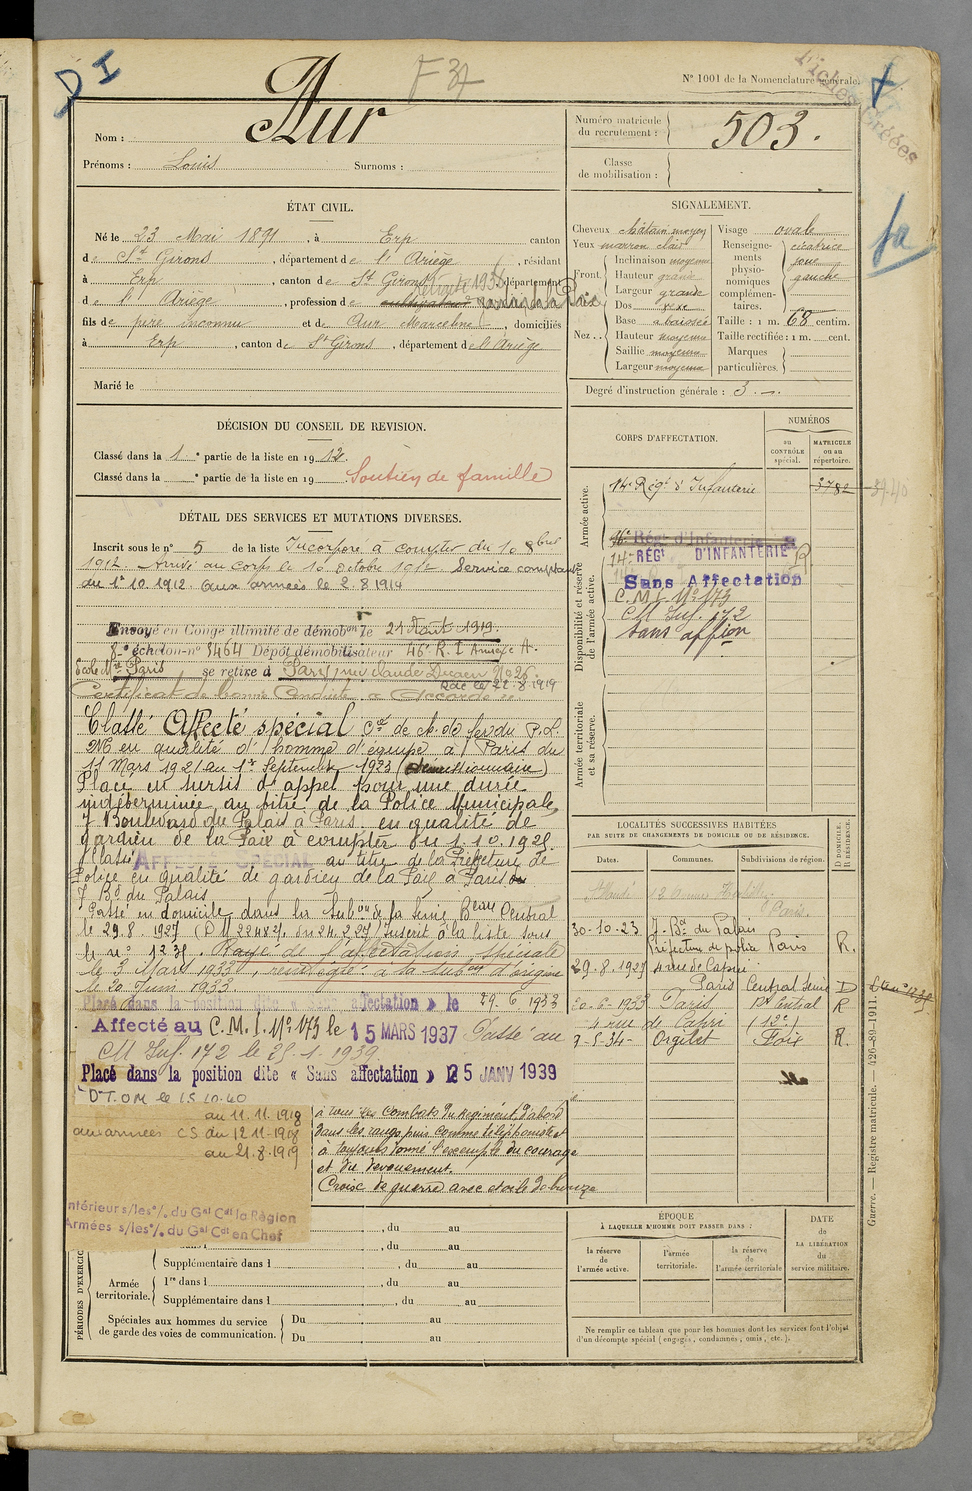 D I
F 37
N° 1001 de la Nomenclature générale.
Fiches créées
Nom : Aur
Prénoms : Louis Surnoms :
Numéro matricule du recrutement : 503.
Classe de mobilisation :
ÉTAT CIVIL.
Né le 23 Mai 1891, à Erp canton
de St Girons, département de l'Ariège, résidant
à Erp, canton de St Girons, département
retraité 1938
de l'Ariège, profession de cultivateur gardien de la Paix
fils de père inconnu et de Aur Marceline, domiciliés
à Erp, canton de St Girons, département de l'Ariège
Marié le
SIGNALEMENT.
Cheveux châtain moyen
Yeux marron clair
Front. Inclinaison moyenne
Hauteur grande
Largeur grande
Nez. Dos
Base abaissée
Hauteur moyenne
Saillie moyenne
Largeur moyenne
Visage ovale
Renseignements physionomiques complémentaires. cicatrice joue gauche
Taille : 1 m. 68 centim.
Taille rectifiée : 1 m. cent.
Marques particulières.
Degré d'instruction générale : 3
DÉCISION DU CONSEIL DE REVISION.
Classé dans la 1e partie de la liste en 1912.
Classé dans la e partie de la liste en 19 . Soutien de famille
DÉTAIL DES SERVICES ET MUTATIONS DIVERSES.
Inscrit sous le n° 5 de la liste Incorporé à compter du 10 8bre
1912. Arrivé au corps le 10 octobre 1912. Service comptant
du 1er 10 1912. Aux armées le 2.8.1914
Envoyé en Congé illimité de démobon le 21 Août 1919
8e échelon n° 3464 Dépôt démobilisateur 46e R.I Annexe A.
Paris se retire à Paris, rue claude Decaen N° 26.
RdC le 22.8.1919
Certificat de bonne Conduite Accordé
Classé Affecté spécial Cie de ch. de fer du P.L.
M en qualité d'homme d'équipe à Paris du
11 Mars 1921 au 1er Septembre 1923 (démissionnaire)
Placé en sursis d'appel pour une durée
indéterminée au titre de la Police Municipale,
7 Boulevard du Palais à Paris en qualité de
gardien de la Paix à compter du 1.10.1925.
Classé AFFECTÉ SPÉCIAL au titre de la Préfecture de
Police en qualité de gardien de la Paix à Paris
7 Bd du Palais
Passé en domicile dans la Subon de la Seine Beau Central
le 29.8.1927 Inscrit à la liste sous
le n° 1235. Rayé de l'affectation spéciale
le 3 Mars 1933, réintégré à la subon d'origine
le 20 Juin 1933.
Placé dans la position dite « Sans affectation » le 29.6.1933
Affecté au C.M.I. N° 173 le 15 MARS 1937 Passé au
CM Inf. 172 le 25.1.1939
Placé dans la position dite « Sans affectation » le 25 JANV 1939
DTOM le 15.10.40
au 11.11.1918
aux armées CS du 12.11.1918
au 21.8.1919
Intérieur s/les o/. du Gal Cdt la Région
Armées s/les o/. du Gal Cdt en Chef
à tous les combats du Régiment, d'abord
dans les rangs puis comme téléphoniste et
a toujours donné l'exemple du courage
et du dévouement.
Croix de guerre avec étoile de bronze
CORPS D'AFFECTATION.
NUMÉROS
au CONTRÔLE spécial.
MATRICULE ou au répertoire.
Armée active.
14e Régt d'Infanterie 3782 3940
Disponibilité et réserve de l'armée active.
Régt d'Infanterie
14e RÉGt D'INFANTERIE
Sans Affectation
C.M.I. N° 173
CM Inf. 172
Sans affon
Armée territoriale et sa réserve.
LOCALITÉS SUCCESSIVES HABITÉES
PAR SUITE DE CHANGEMENTS DE DOMICILE OU DE RÉSIDENCE.
Dates. Communes. Subdivisions de région. D DOMICILE. R RÉSIDENCE.
Paris
30-10-23 7. Bd du Palais
Préfecture de police Paris R.
29.8.1927 4 rue de Capri
Paris Central Seine D
20-6-1933 Paris Central R
4 rue de Capri (12e)
9-5-34- Orgibet Foix R.
PÉRIODES D'EXERCICES
, du au
, du au
Supplémentaire dans l , du au
Armée territoriale. 1re dans l , du au
Supplémentaire dans l , du au
Spéciales aux hommes du service de garde des voies de communication. Du au
Du au
ÉPOQUE
À LAQUELLE L'HOMME DOIT PASSER DANS :
la réserve de l'armée active.
l'armée territoriale.
la réserve de l'armée territoriale
DATE de LA LIBÉRATION du service militaire.
Ne remplir ce tableau que pour les hommes dont les services font l'objet
d'un décompte spécial (engagés, condamnés, omis, etc.).
Guerre. — Registre matricule. — 426-89-1911.